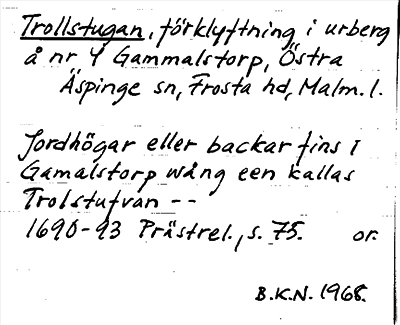 Trollstugan, förklyftning i urberg
å nr 4 Gammalstorp, Östra
Äspinge sn, Frosta hd, Malm. l.
Jordhögar eller backar fins I
Gamalstorp wång een kallas
Trolstufvan --
1690-93 Prästrel., s. 75. or.
B.K.N. 1968.